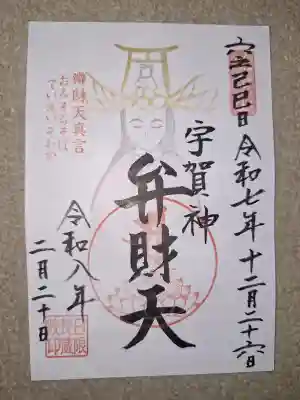 己巳日 令和七年十二月二十六日
宇賀神
弁財天
令和八年
二月二十日
財天真言
おんそらそば
ていえいそわか